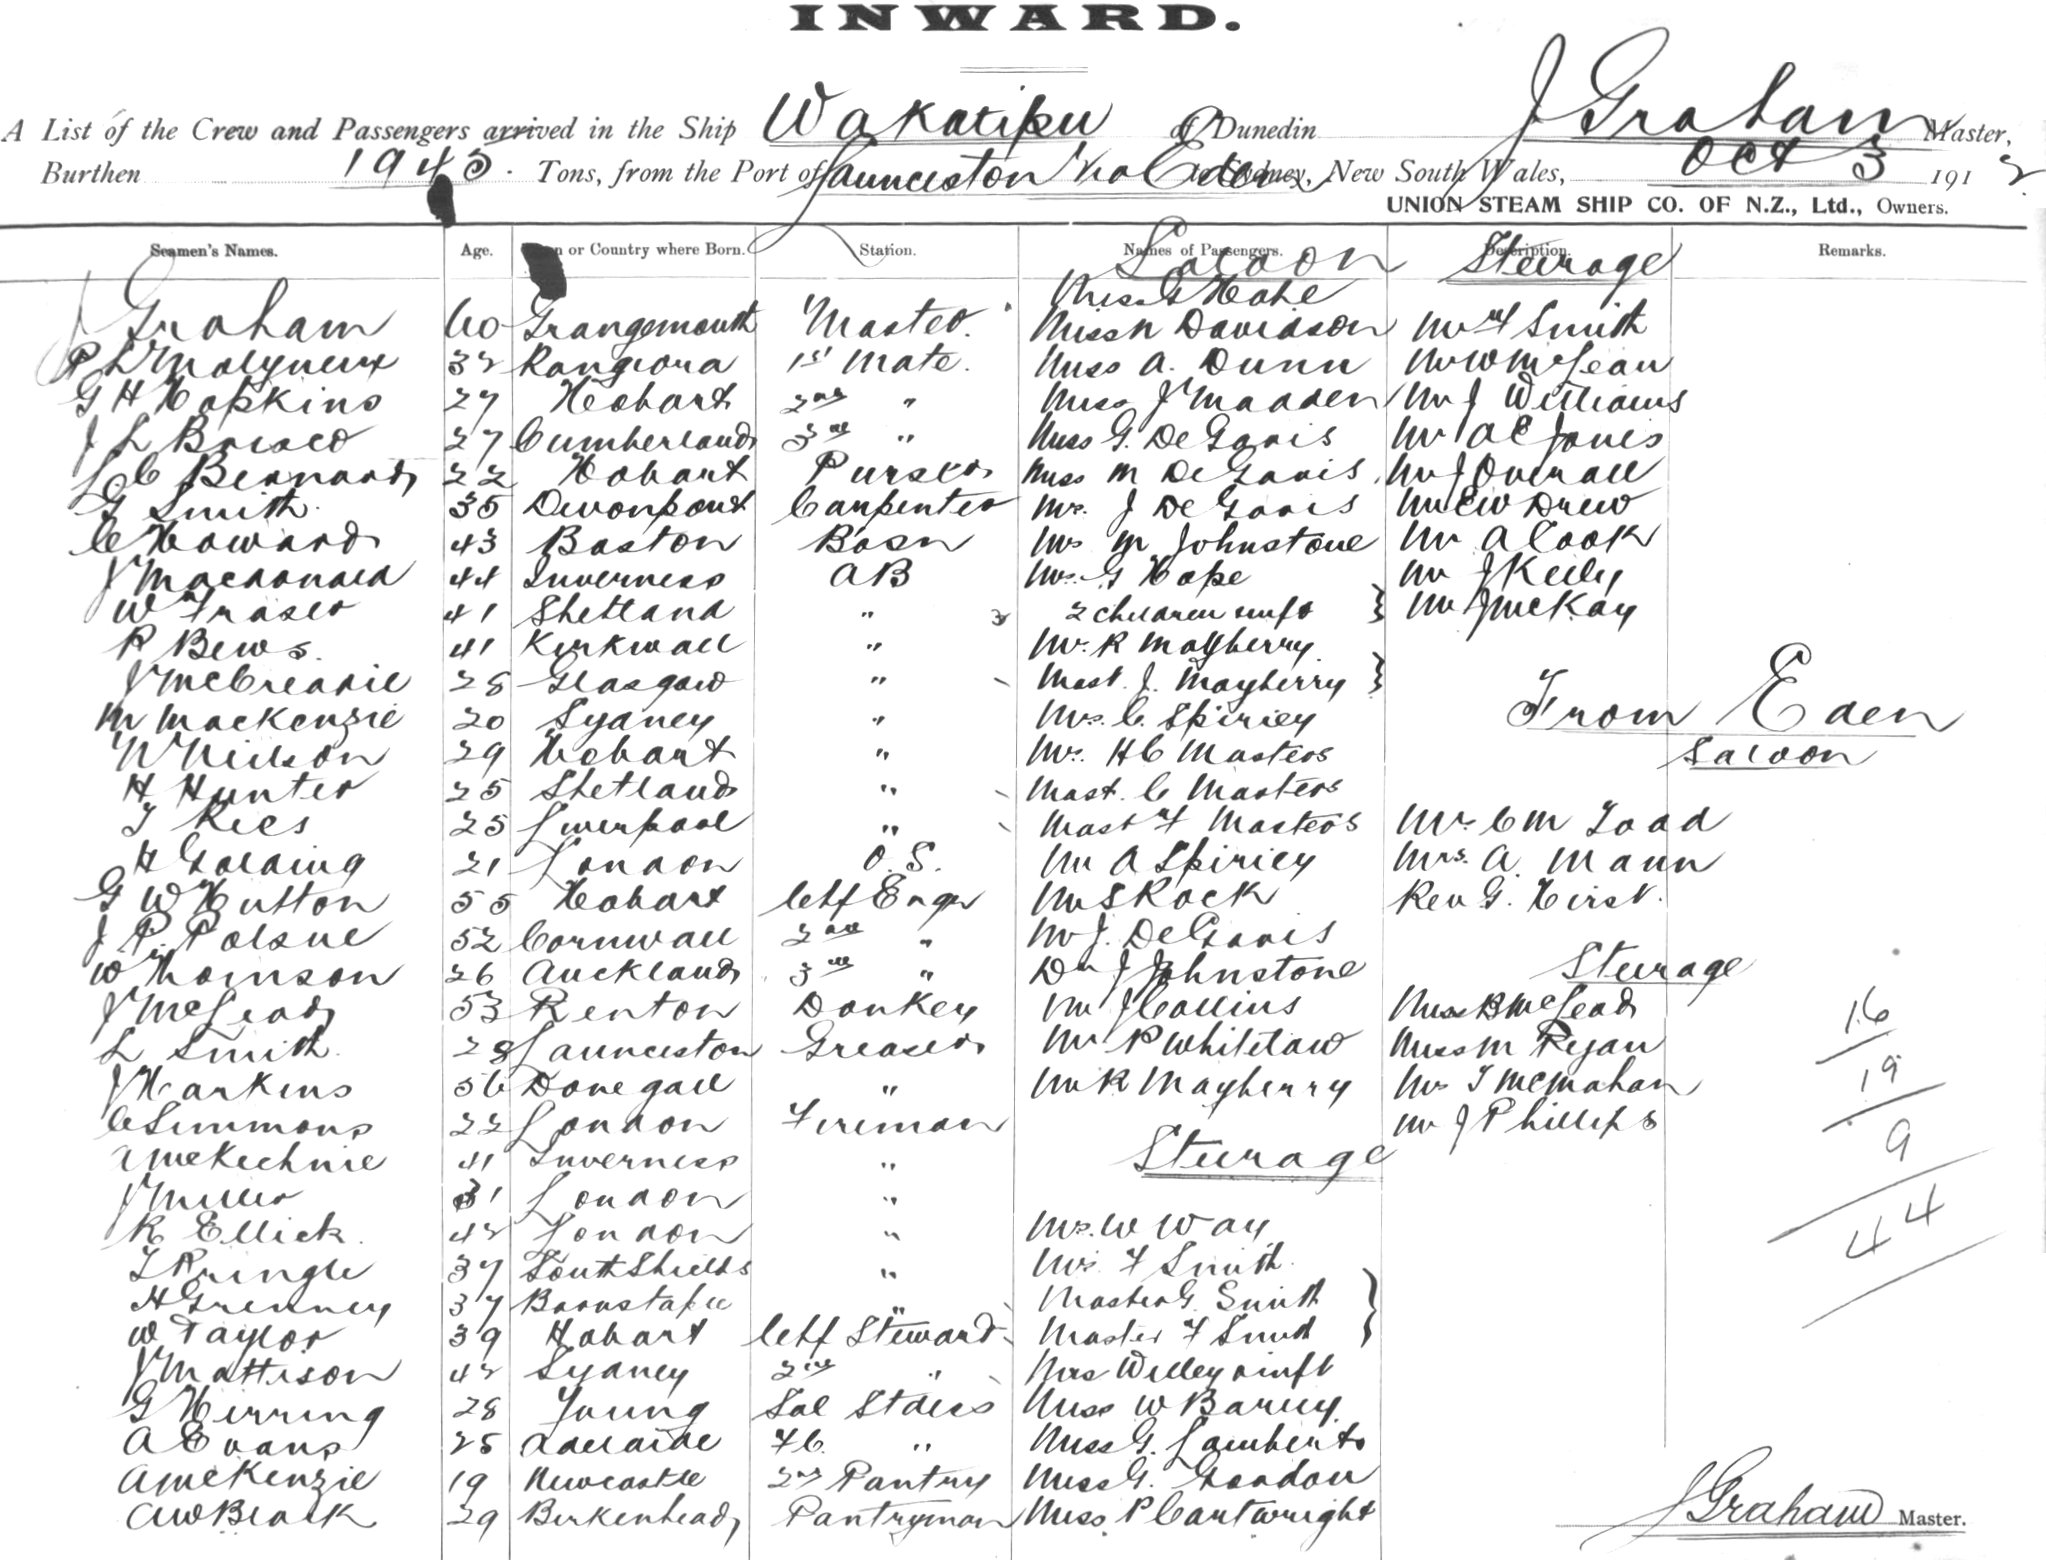 INWARD.
A List of the Crew and Passengers arrived in the Ship Wakatipu of Dunedin J Graham Master,
Burthen 1945. Tons, from the Port of Launceston via Eden to Sydney, New South Wales, Oct 3 1912
UNION STEAM SHIP CO. OF N.Z., Ltd., Owners.
Seamen's Names. Age. or Country where Born. Station. Names of Passengers. Description. Remarks.
Saloon Steerage
Miss G Hope
J Graham 60 Grangemouth Master. Miss N Davidson Mr F Smith
P L Molyneux 32 Rangiora 1st Mate. Miss A. Dunn Mr W McLean
G H Hopkins 27 Hobart 2nd " Miss J Madden Mr J Williams
J L Brisco 27 Cumberland 3rd " Miss G. De Garis Mr A E Jones
L C Bernard 22 Hobart Purser Miss M De Garis Mr J Overall
G Smith 35 Devonport Carpenter Mrs. J De Garis Mr E W Drew
C Howard 43 Boston Bosn Mrs M Johnstone Mr A Cook
J Macdonald 44 Inverness AB Mrs. G Hope Mr J Kelly
W Fraser 41 Shetland " 2 children & inft } Mr J McKay
R Bews. 41 Kirkwall " Mrs. R Mayberry
J McCreadie 28 Glasgow " Mast. J. Mayberry }
From Eden
M Mackenzie 20 Sydney " Mrs. C. Spiriey
Saloon
N Neilson 29 Hobart " Mrs. H C Masters
H Hunter 25 Shetland " Mast. C Masters
T Rees 25 Liverpool " Mast F Masters Mrs C M Todd
H Golding 21 London O.S. Mr A Spiriey Mrs. A. Mann
G W Hutton 55 Hobart Chf Engr Mr S Rock Rev G. Hirst.
J P. Polsue 52 Cornwall 2nd " Mr J. De Garis
W Thomson 26 Auckland 3rd " Dr J Johnstone Steerage
J McLeod 53 Renton Donkey Mr J Collins Miss B McLeod 16
L Smith 28 Launceston Greaser Mr P Whitelaw Miss M Ryan
J Harkins 56 Donegall " Mr R Mayberry Mrs T McMahon 19
C Simmons 22 London Fireman Mr J Phillips
McKechnie 41 Inverness " Steerage 9
J Miller 31 London "
R Ellick. 42 London " Mrs. W Way 44
T Pringle 37 South Shields " Mrs. F Smith.
H Grenney 37 Barnstaple " Master G. Smith
W Taylor 39 Hobart Chf Steward Master F Smith }
J Mattison 42 Sydney 2nd " Mrs Willey & inft
G Herring 28 Young Sal Stdess Miss W Barney
A Evans 25 Adelaide F C. " Miss G. Lamberto
A McKenzie 19 Newcastle 2nd Pantry Miss G. Gordon
A W Black 29 Birkenhead Pantryman Miss P Cartwright
J Graham Master.